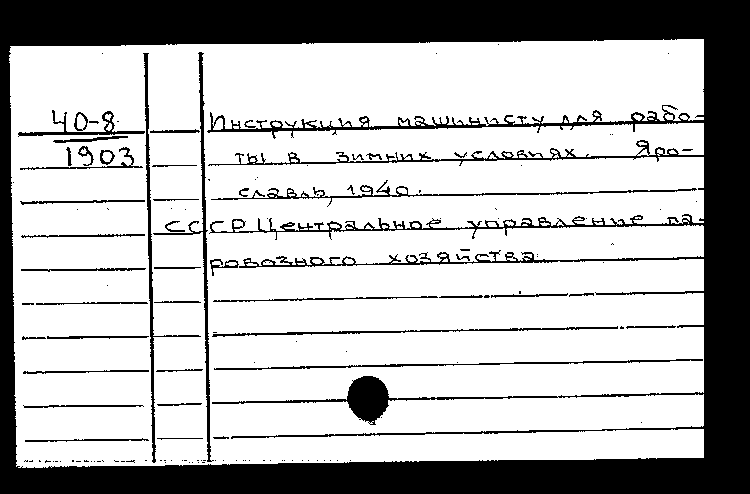 40-8
1903
Инструкция машинисту для рабо-
ты в зимних условиях. Яро-
славль, 1940.
СССР Центральное управление па-
ровозного хозяйства